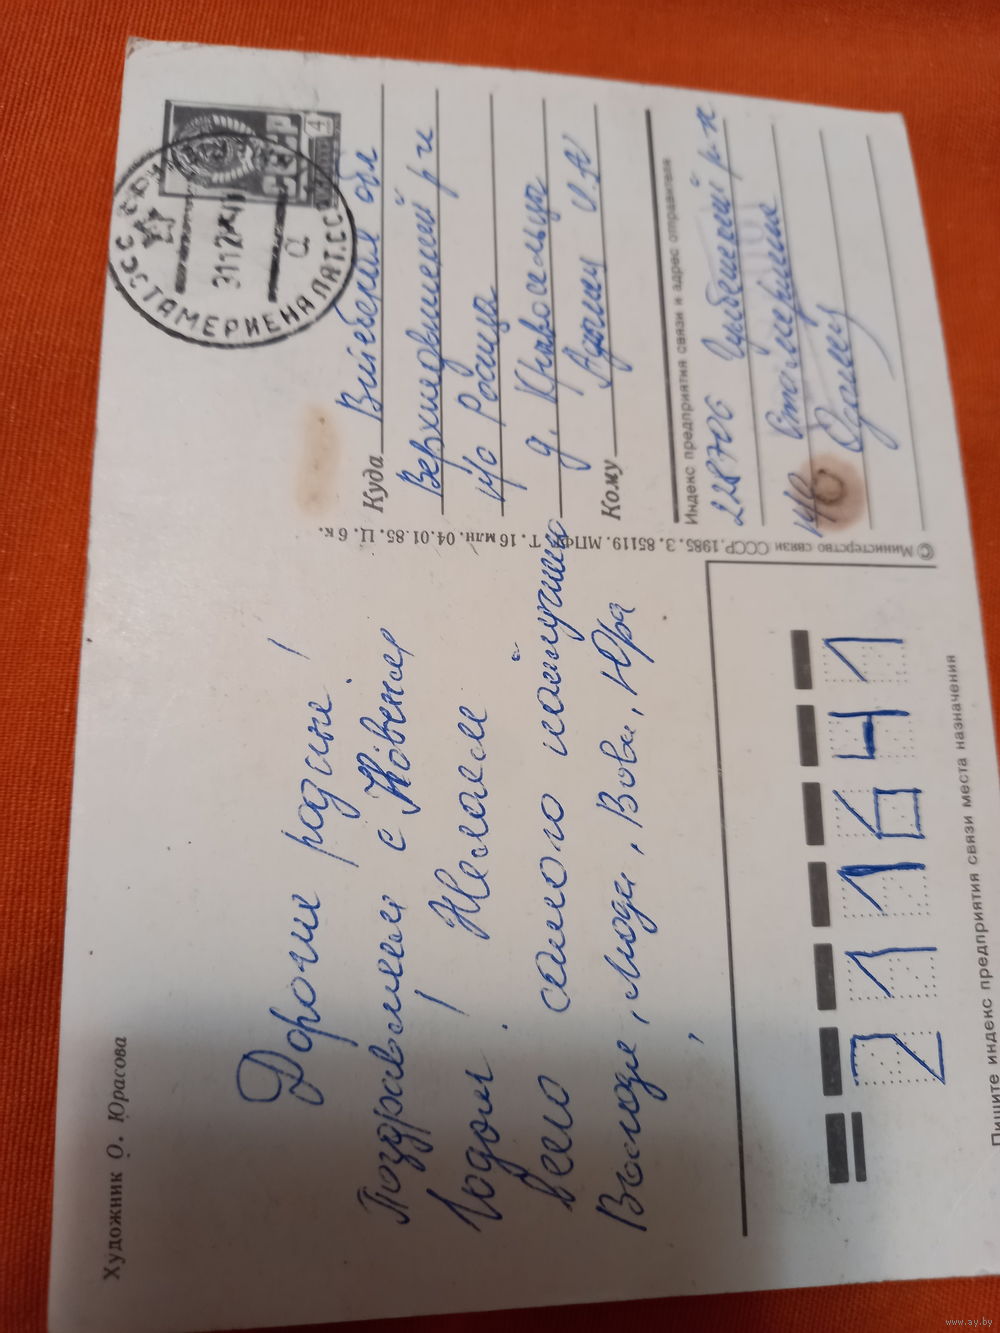 Художник О. Юрасова
Дорогие родные!
Поздравляем с Новым
Годом! Желаем
всего самого наилучшего
Володя, Люда, Вова, Юра
© Министерство связи СССР. 1985. З. 85119. МПФГ. Т. 16 млн. 04.01.85. Ц. 6 к.
СССР
4
3112
СТАМЕРИЕНА ЛАТ.ССР
Куда Витебская обл
Верхнедвинский р-н
п/о Росица
д. Кравосельцы
Кому
Индекс предприятия связи и адрес отправителя
228706 Гулбенский р-н
п/о Стамериена
211641
Пишите индекс предприятия связи места назначения
www.ay.by